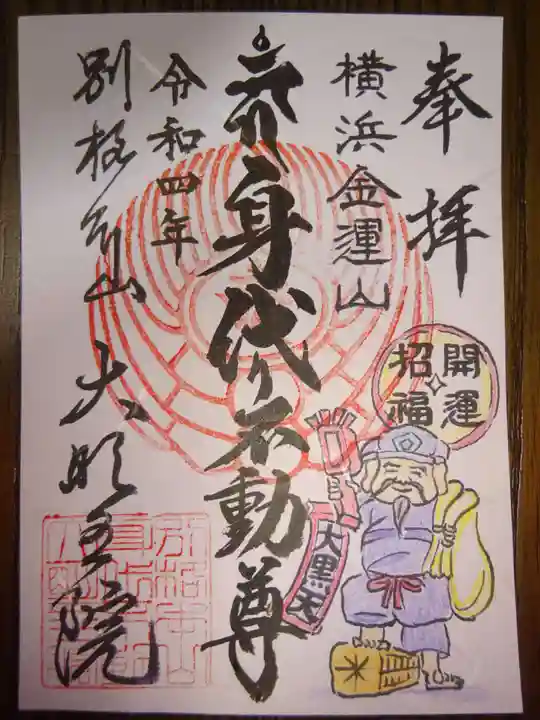 奉拝
開運
招福
横浜金運山
大黒天
米
身代り不動尊
令和四年
別格本山 大明王院